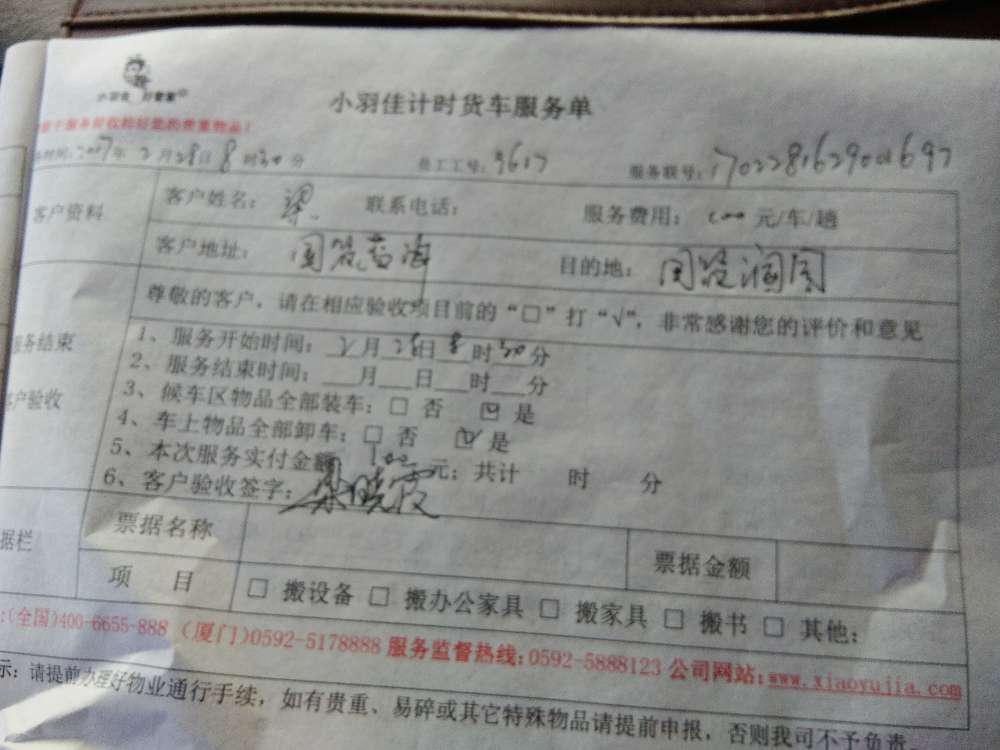 小羽佳计时货车服务单
务时间:2007年2月28日8时30分 员工工号:3617 服务联号:
客户资料 客户姓名:梁 联系电话: 服务费用:100元/车/趟
客户地址: 目的地:
尊敬的客户,请在相应验收项目前的“□”打“√”,非常感谢您的评价和意见
服务结束
客户验收
1、服务开始时间:2月28日8时30分
2、服务结束时间:___月___日___时___分
3、候车区物品全部装车:□ 否 ☑ 是
4、车上物品全部卸车:□ 否 ☑ 是
5、本次服务实付金额 100元;共计 时 分
6、客户验收签字:梁晓霞
据栏 票据名称 票据金额
项 目 □ 搬设备 □ 搬办公家具 □ 搬家具 □ 搬书 □ 其他:
:(全国)400-6655-888 (厦门)0592-5178888 服务监督热线:0592-5888123 公司网站:www.xiaoyujia.com
示:请提前办理好物业通行手续,如有贵重、易碎或其它特殊物品请提前申报,否则我司不予负责